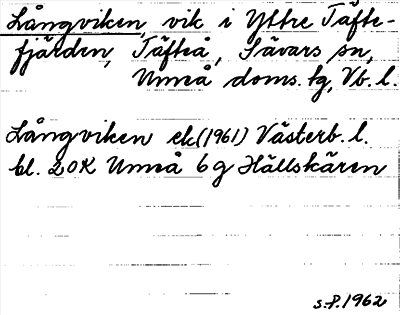 Långviken, vik i Yttre Täfte-
fjärden, Täfteå, Sävars sn,
Umeå doms. tg, Vb. l.
Långviken ek (1961) Västerb. l.
bl. 20K Umeå 6g Hällskären
S.P. 1962